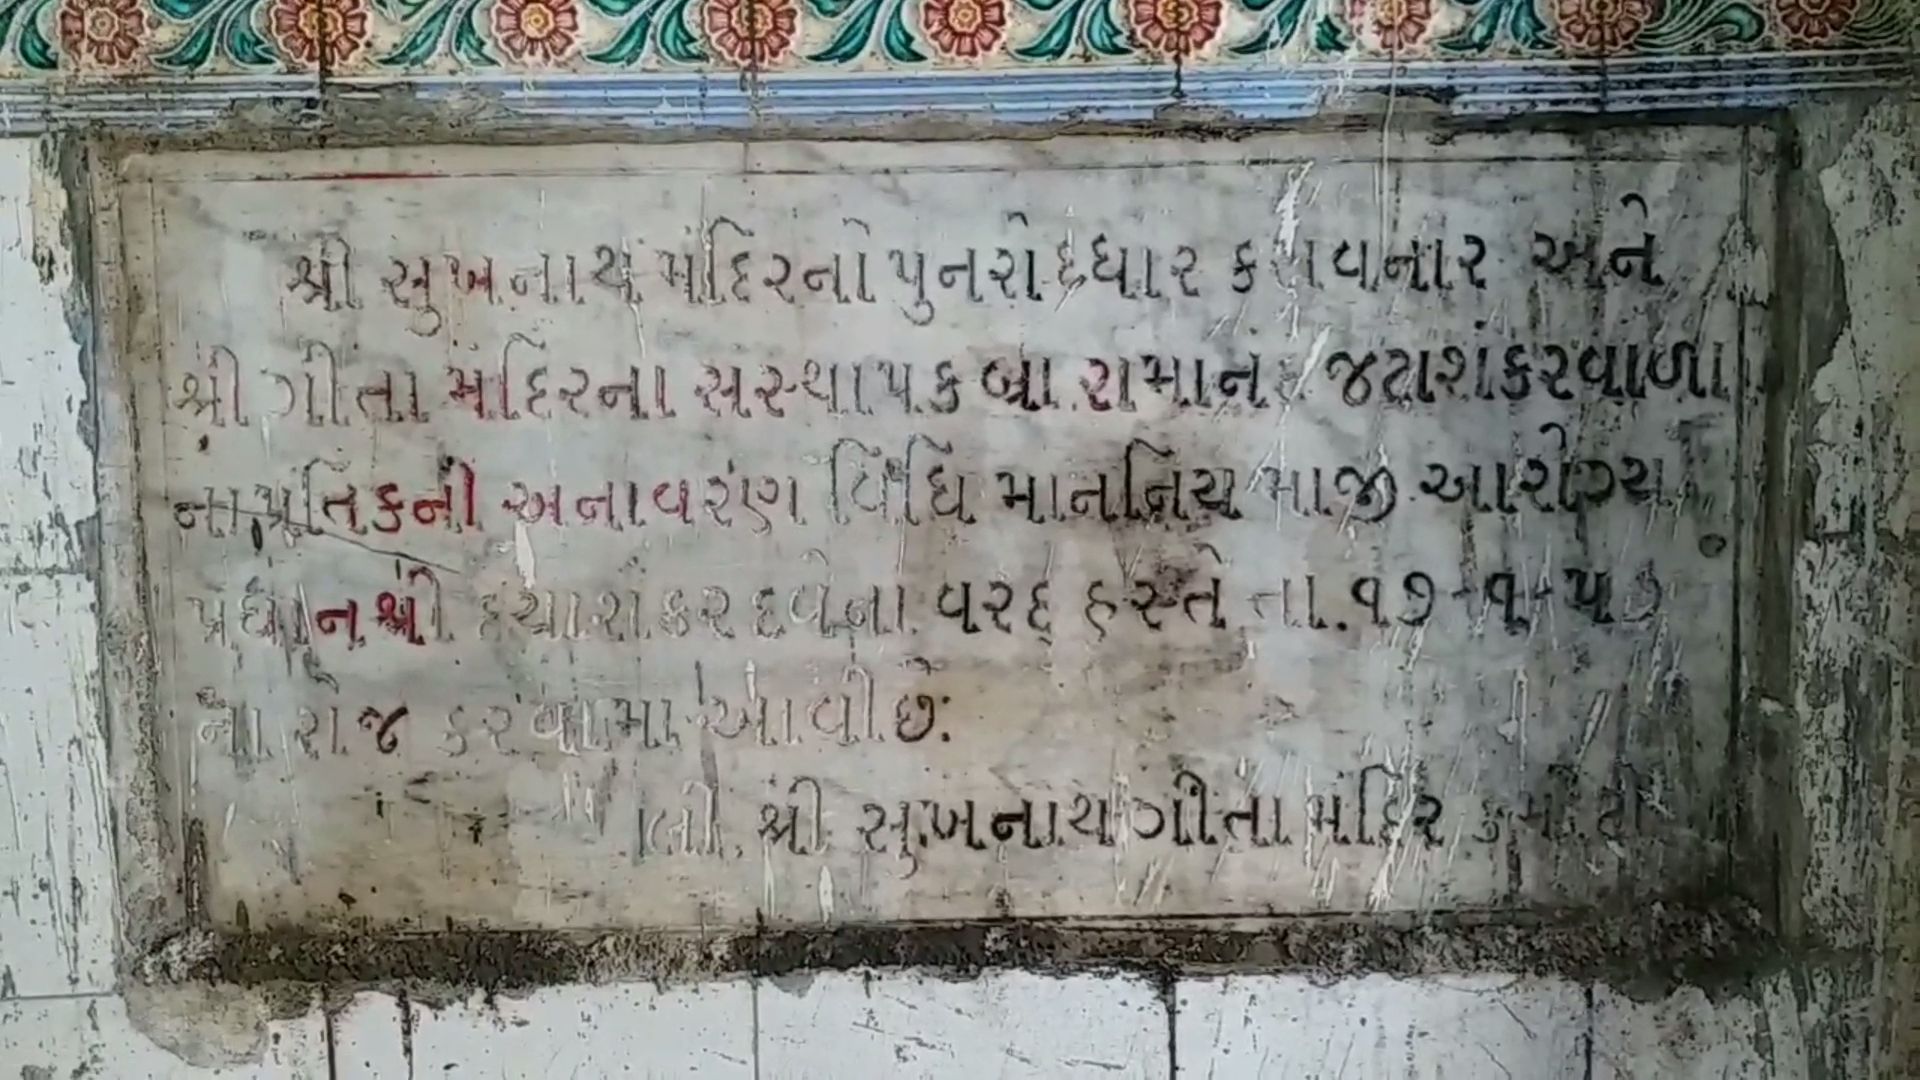 શ્રી સુખનાથ મંદિરનો પુનરોદ્ધાર કરાવનાર અને
શ્રી ગીતા મંદિરના સસ્થાપક બ્રા. રામાનંદ જટાશંકરવાળા
ના પ્રતિકની અનાવરણ વિધિ માનનિય માજી આરોગ્ય
પ્રધાનશ્રી દયાશંકર દવેના વરદ્ હસ્તે તા. ૧૭-૧-૫૭
ના રોજ કરવામા આવી છે:
લી. શ્રી સુખનાથ ગીતા મંદિર કમીટી